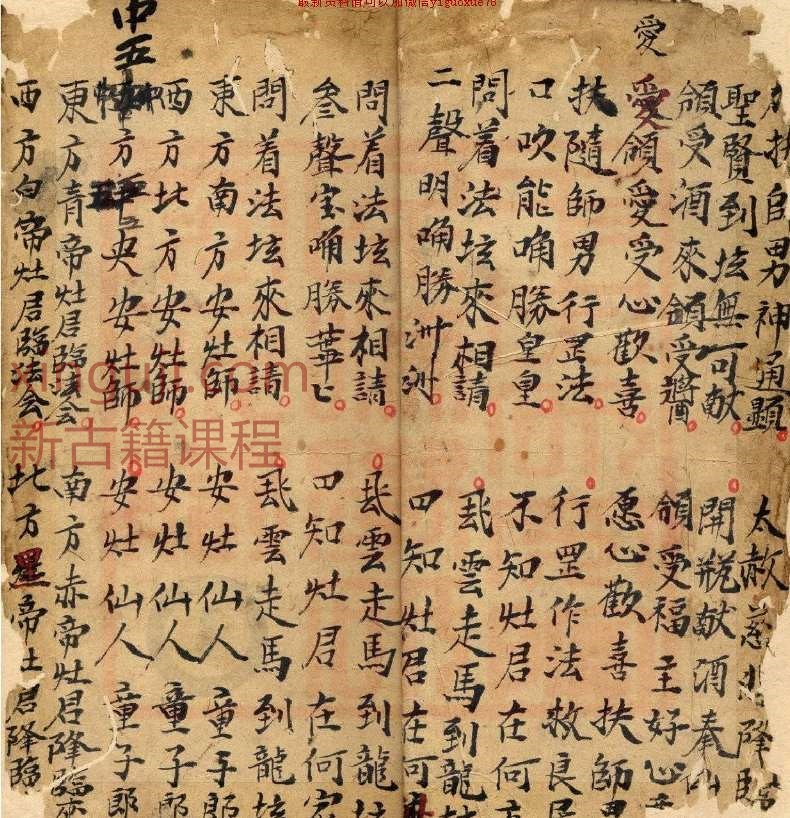 最新资料信可以加微信yiguoxue78
愛
扶自男神通顯 太赦慈悲降臨
聖賢到坛無可献 開瓶献酒奉
領受酒來領受醬 領受福主好心
愛領愛受心歡喜 愿心歡喜扶師男
扶隨師男行罡法 行罡作法救良民
口吹能喃勝皇皇 不知灶君在何方
問着法坛來相請 雲走馬到龍坛
二聲明喃勝洲洲 四知灶君在何
問着法坛來相請 雲走馬到龍
叁聲宝喃勝華 四知灶君在何宮
問着法坛來相請 雲走馬到龍坛
東方南方安灶師 安灶仙人童子郎
西方北方安灶師 安灶仙人童子郎
中五
方中央安灶師 安灶仙人童子郎
東方青帝灶君臨法会 南方赤帝灶君降臨來
西方白帝灶君臨法会 北方黑帝灶君降臨
xinguji.com
新古籍课程